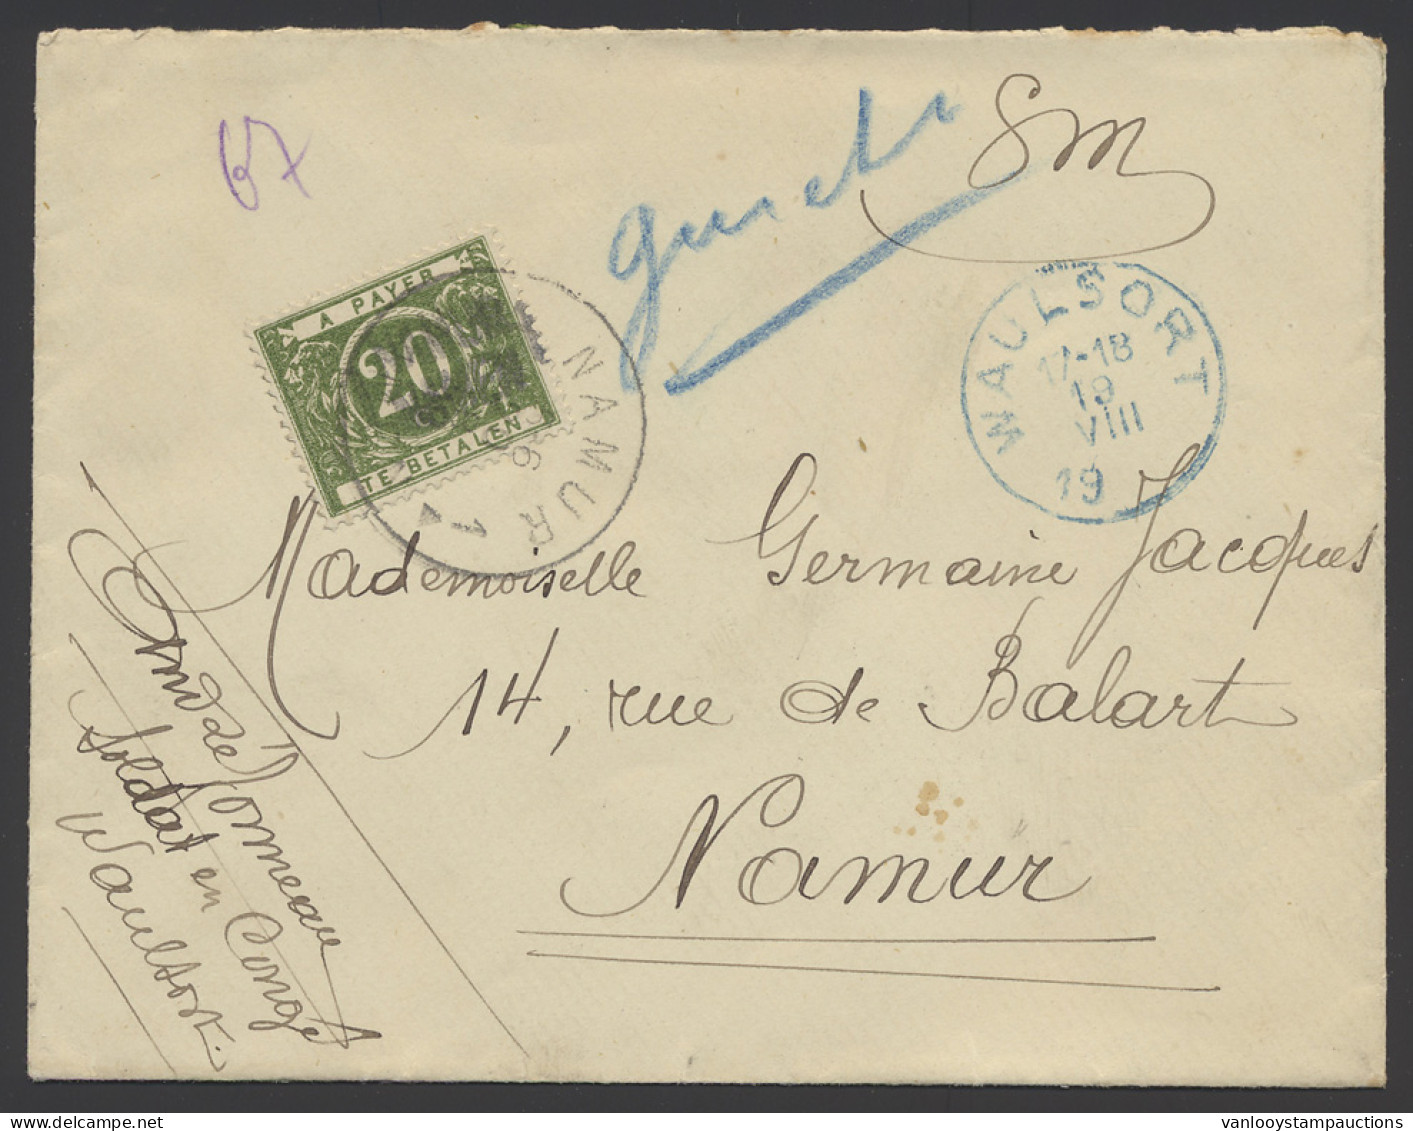 b7
SM
A PAYER
20
TE BETALEN
NAMUR 1
WAULSORT
17-18
19
VIII
19
Mademoiselle Germaine Jacques
14, rue de Balart
Namur
Soldat en Congé
Waulsort.
vanlooystampauctions